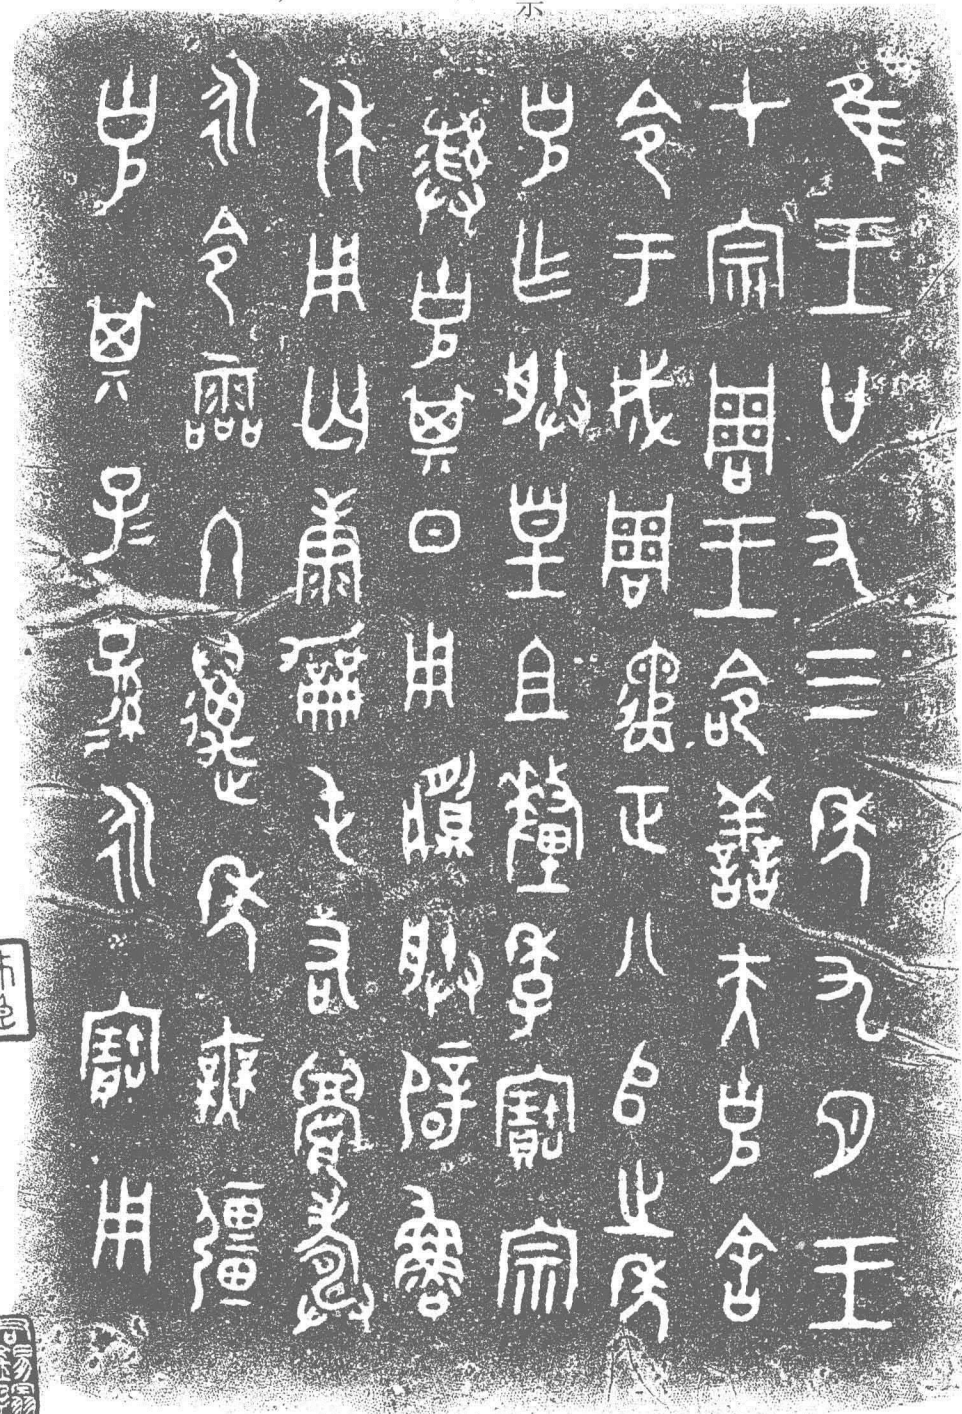 隹王廿又三年九月王
才宗周王命善夫克舍
令于成周遹正八𠂤之年
克乍朕皇且釐季寶宗
彝克其日用朕辟魯
休用匄康勵屯右眉壽
永令霝冬萬年無疆
克其子=孫=永寶用